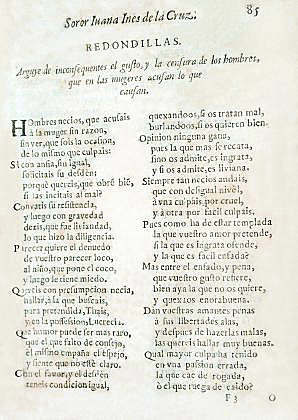 Soror Iuana Inès de la Cruz.
85
REDONDILLAS.
Arguye de inconsequentes el gusto, y la censura de los hombres,
que en las mugeres acusan lo que
causan.
HOmbres necios, que acusais
à la muger sin razon,
sin ver, que sois la ocasion,
de lo mismo que culpais:
Si con ansia, sin igual,
solicitais su desdèn;
porquè quereis, que obrè biẽ,
si las incitais al mal?
Convatis su resistencia,
y luego con gravedad
dezis, que fue liviandad,
lo que hizo la diligencia.
Parecer quiere el denuedo
de vuestro parecer loco,
al niño, que pone el coco,
y luego le tiene miedo.
Quereis con presumpcion necia,
hallar, à la que buscais,
para pretendida, Thais,
y en la possession, Lucrecia.
Que humor puede ser mas raro,
que el que falto de consejo,
èl mismo empaña el espejo,
y siente que no estè claro.
Con el favor, y el desdèn
teneis condicion igual,
quexandoos, si os tratan mal,
burlandoos, si os quierẽn bien.
Opinion ninguna gana,
pues la que mas se recata,
sino os admite, es ingrata,
y si os admite, es liviana.
Siempre tan necios andais,
que con desigual nivèl,
à vna culpais por cruel,
y à otra por facil culpais.
Pues como ha de estar templada
la que vuestro amor pretende,
si la que es ingrata ofende,
y la que es facil enfada?
Mas entre el enfado, y pena,
que vuestro gusto refiere,
bien aya la que no os quiere,
y quexaos enorabuena.
Dan vuestras amantes penas
à sus libertades alas,
y despues de hazerlas malas,
las quereis hallar muy buenas.
Qual mayor culpa ha tenido
en vna passion errada,
la que cae de rogada,
ò el que ruega de caido?
F 3
O